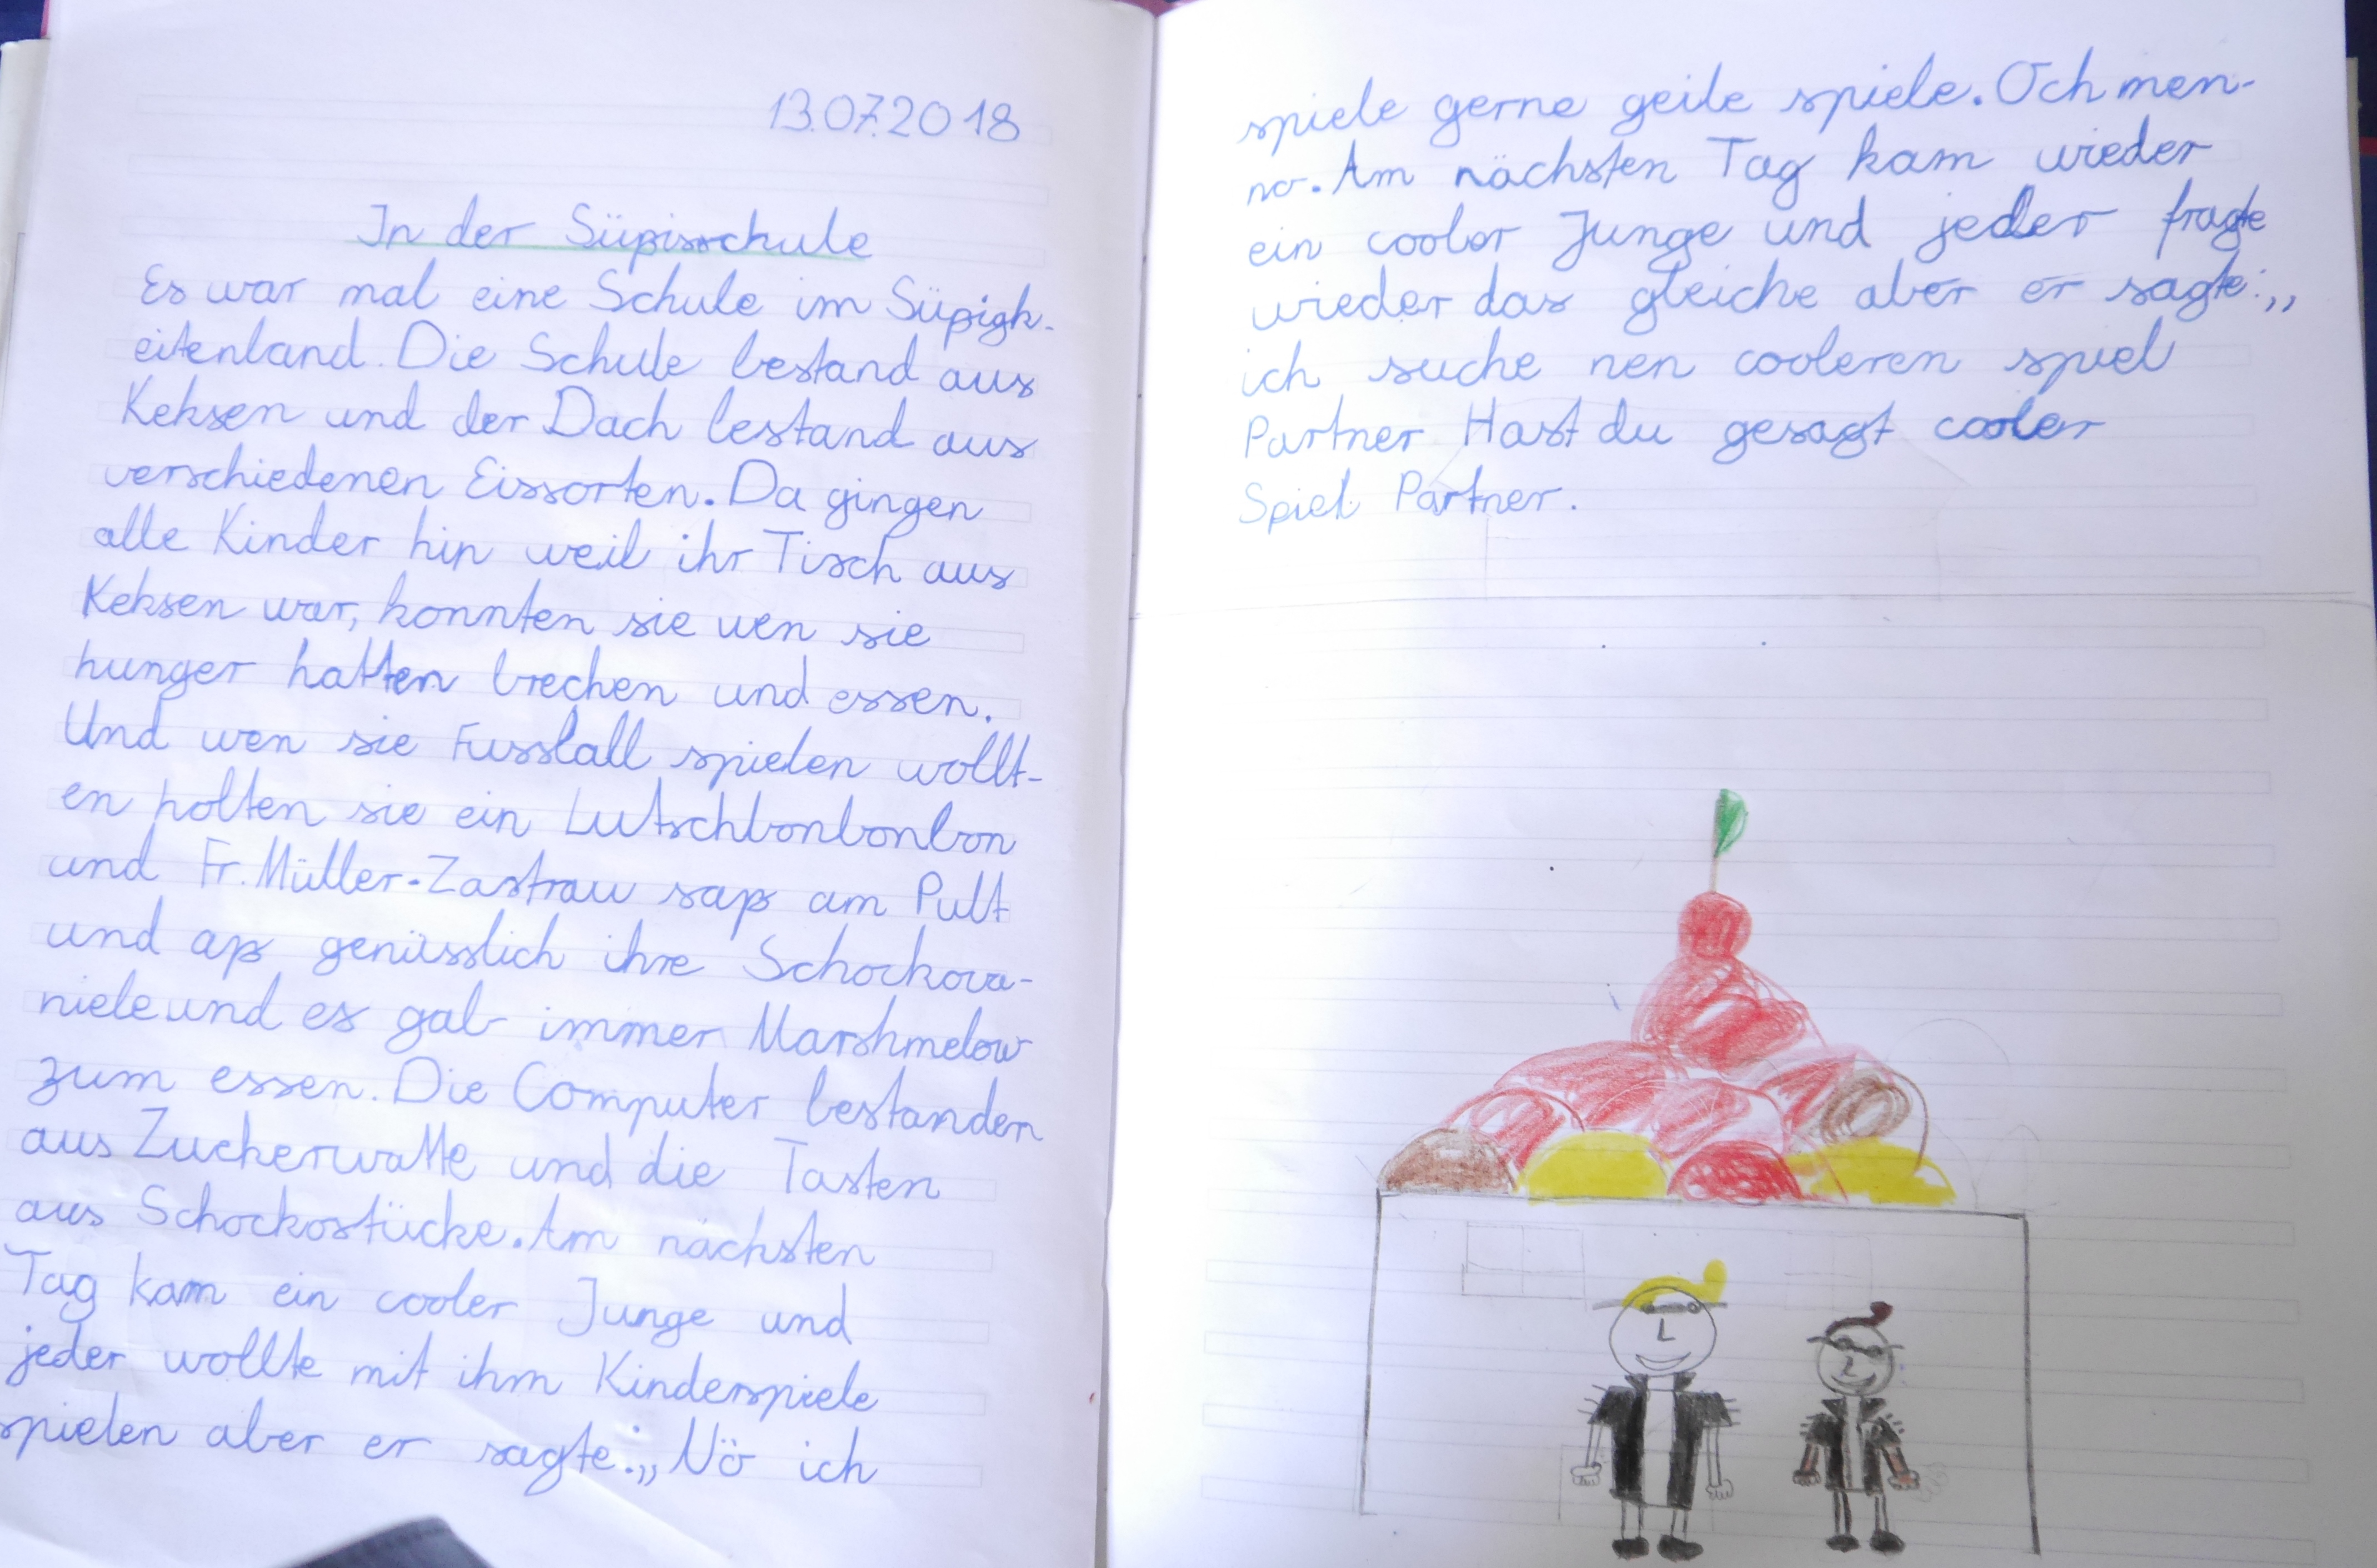 13.07.2018
In der Süßisschule
Es war mal eine Schule im Süßigk-
eitenland. Die Schule bestand aus
Keksen und der Dach bestand aus
verschiedenen Eissorten. Da gingen
alle Kinder hin weil ihr Tisch aus
Keksen war, konnten sie wen sie
hunger hatten brechen und essen.
Und wen sie Fussball spielen wollt-
en holten sie ein Lutschbonbonbon
und Fr. Müller-Zastrau saß am Pult
und aß genüsslich ihre Schockova-
niele und es gab immer Marshmelow
zum essen. Die Computer bestanden
aus Zuckerwatte und die Tasten
aus Schockostücke. Am nächsten
Tag kam ein cooler Junge und
jeder wollte mit ihm Kinderspiele
spielen aber er sagte:„Nö ich
spiele gerne geile spiele. Och men-
no. Am nächsten Tag kam wieder
ein cooler Junge und jeder fragte
wieder das gleiche aber er sagte:„
ich suche nen cooleren spiel
Partner Hast du gesagt cooler
Spiel Partner.